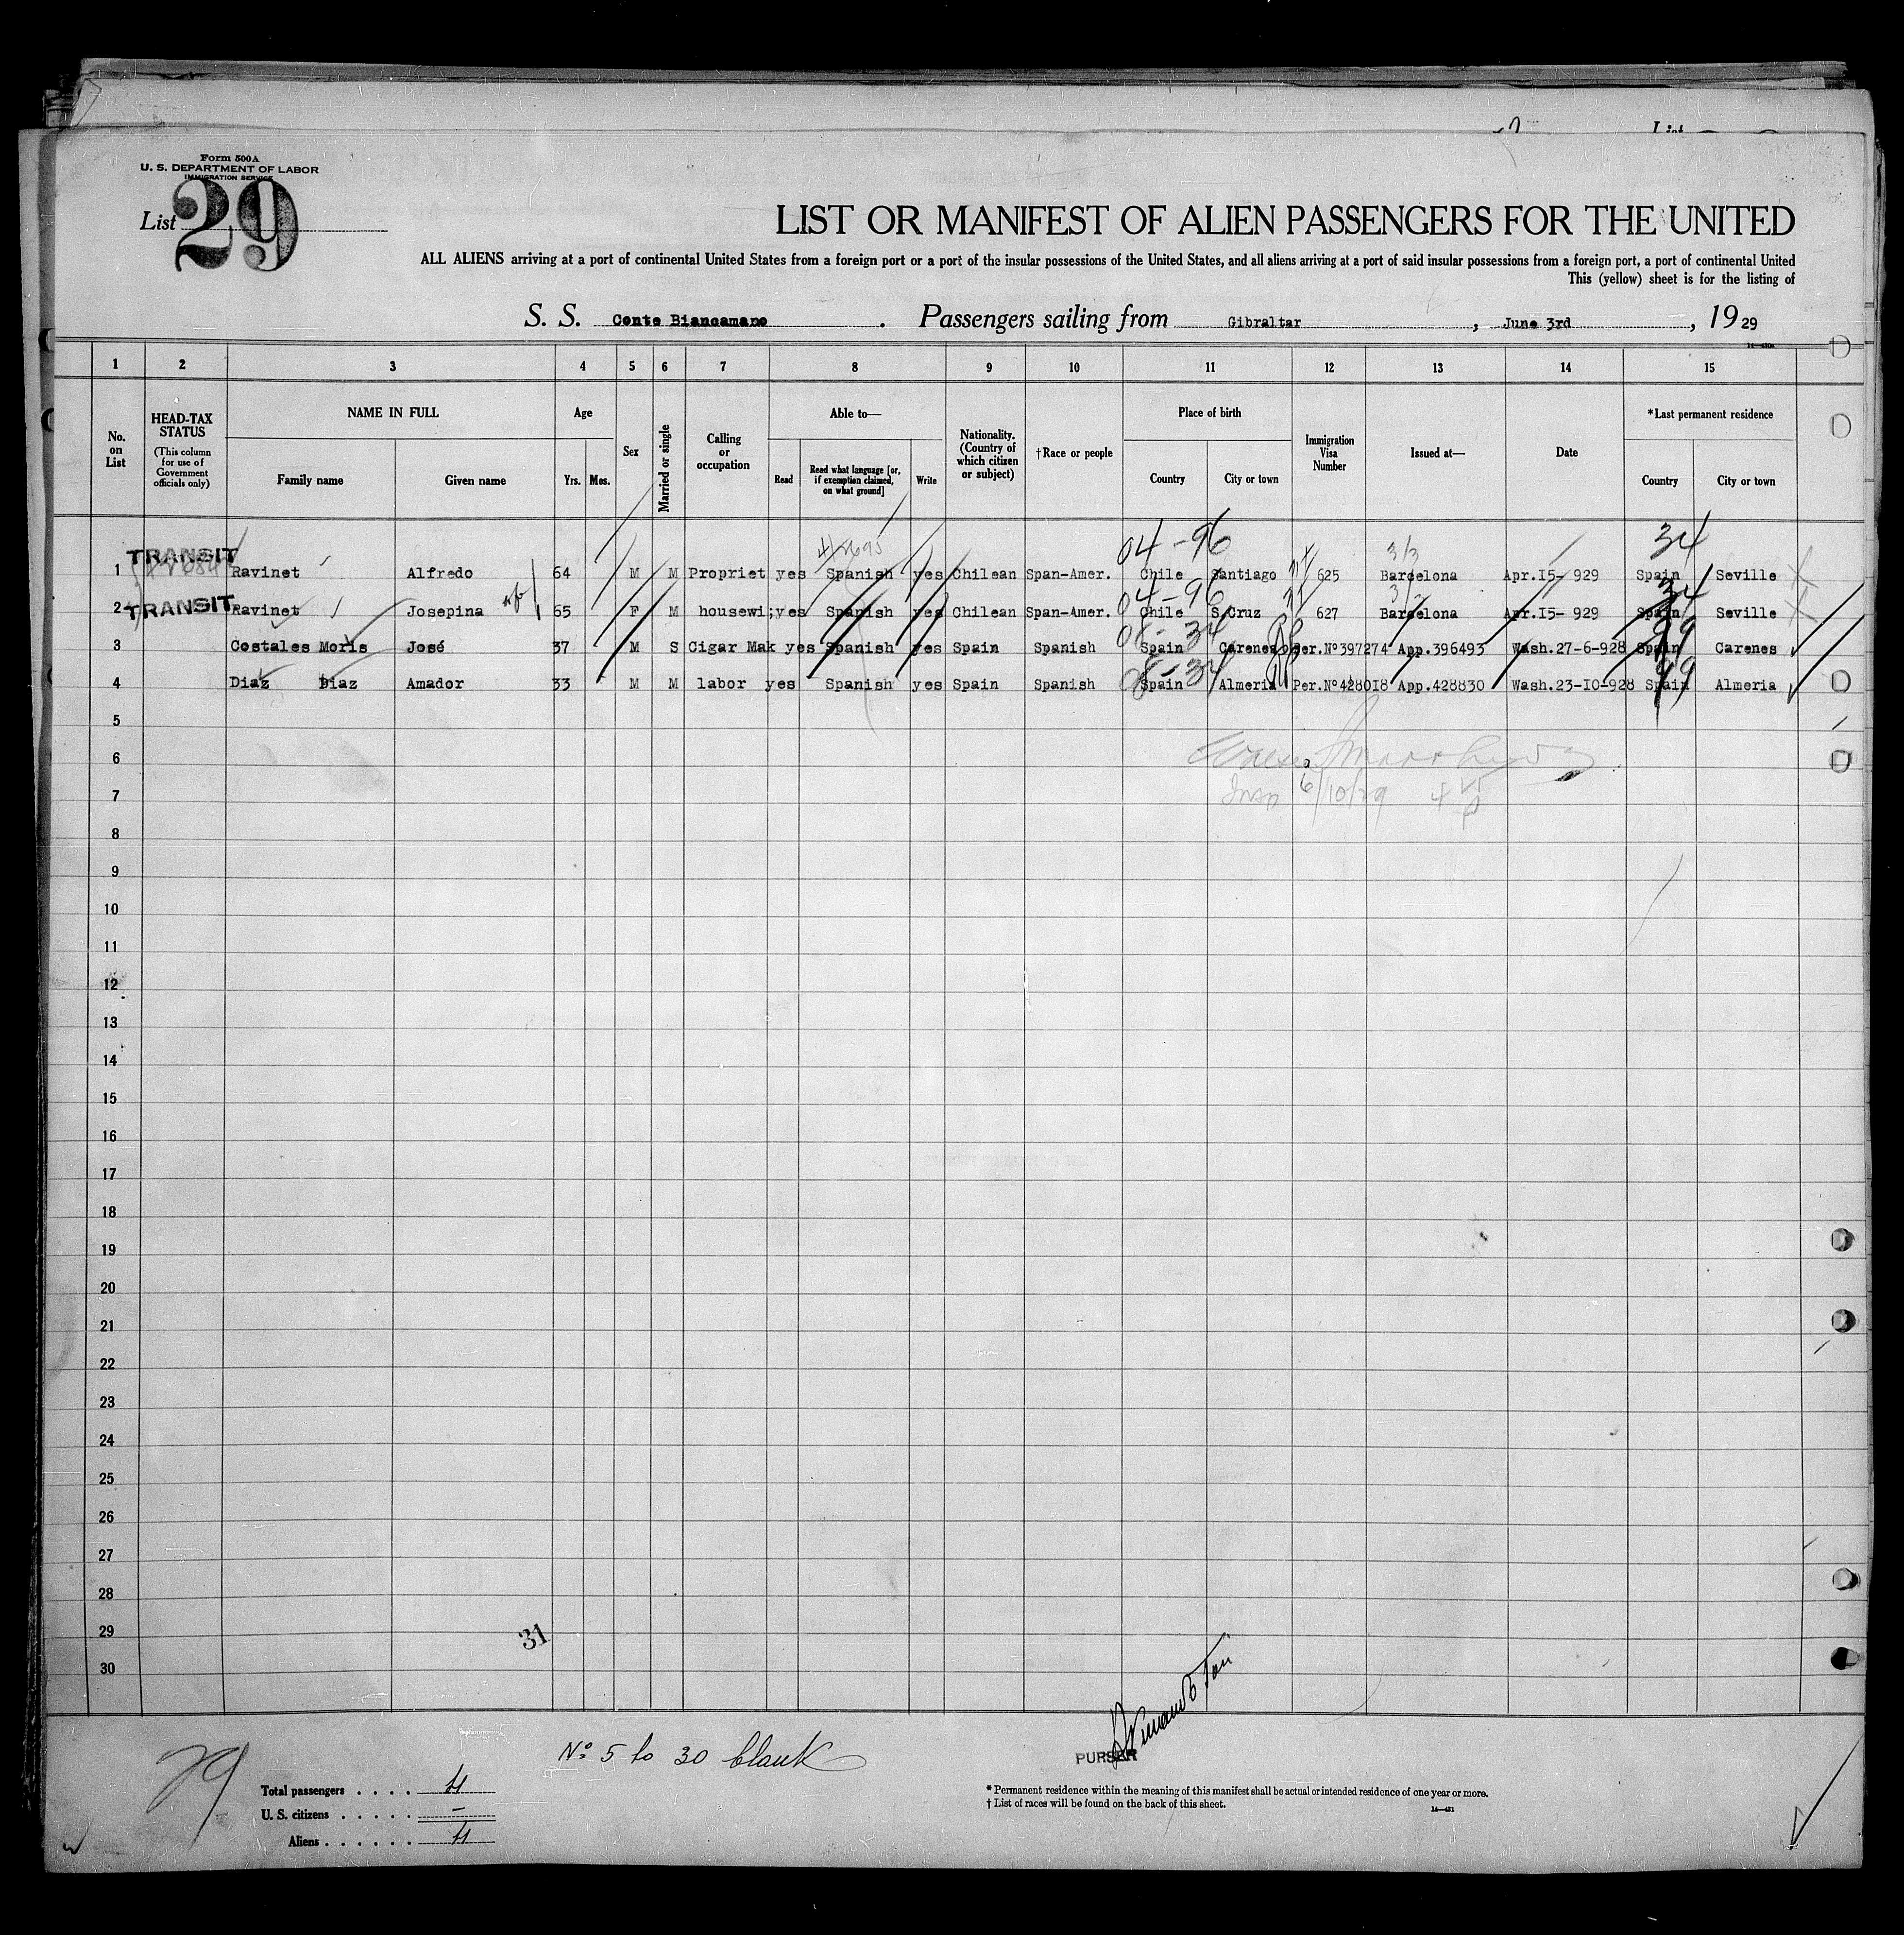 Form 500A
U. S. DEPARTMENT OF LABOR
IMMIGRATION SERVICE
List 29
LIST OR MANIFEST OF ALIEN PASSENGERS FOR THE UNITED
ALL ALIENS arriving at a port of continental United States from a foreign port or a port of the insular possessions of the United States, and all aliens arriving at a port of said insular possessions from a foreign port, a port of continental United
This (yellow) sheet is for the listing of
S. S. Conte Biancamano. Passengers sailing from Gibraltar, June 3rd, 1929
1 2 3 4 5 6 7 8 9 10 11 12 13 14 15
No. on List
HEAD-TAX STATUS (This column for use of Government officials only)
NAME IN FULL Family name Given name
Age Yrs. Mos.
Sex
Married or single
Calling or occupation
Able to— Read Read what language [or, if exemption claimed, on what ground] Write
Nationality. (Country of which citizen or subject)
†Race or people
Place of birth Country City or town
Immigration Visa Number
Issued at—
Date
*Last permanent residence Country City or town
04-96 3/3 34
1 TRANSIT Ravinet Alfredo 64 M M Propriet yes Spanish yes Chilean Span-Amer. Chile Santiago 625 Barcelona Apr.I5- 929 Spain Seville
04-96 34
2 TRANSIT Ravinet Josepina 65 F M housewi; yes Spanish yes Chilean Span-Amer. Chile S.Cruz 627 Barcelona Apr.I5- 929 Spain Seville
08-34 99
3 Costales Moris José 37 M S Cigar Mak yes Spanish yes Spain Spanish Spain Carenes Per.Nº397274 App.396493 Wash.27-6-928 Spain Carenes
08-34 99
4 Diaz Diaz Amador 33 M M labor yes Spanish yes Spain Spanish Spain Almeria Per.Nº428018 App.428830 Wash.23-IO-928 Spain Almeria
5
6
7 6/10/29
8
9
10
11
12
13
14
15
16
17
18
19
20
21
22
23
24
25
26
27
28
29 31
30
Nº 5 to 30 blank
PURSER
29
Total passengers . . . . 4
U. S. citizens . . . . . -
Aliens . . . . . . 4
* Permanent residence within the meaning of this manifest shall be actual or intended residence of one year or more.
† List of races will be found on the back of this sheet.
14—431